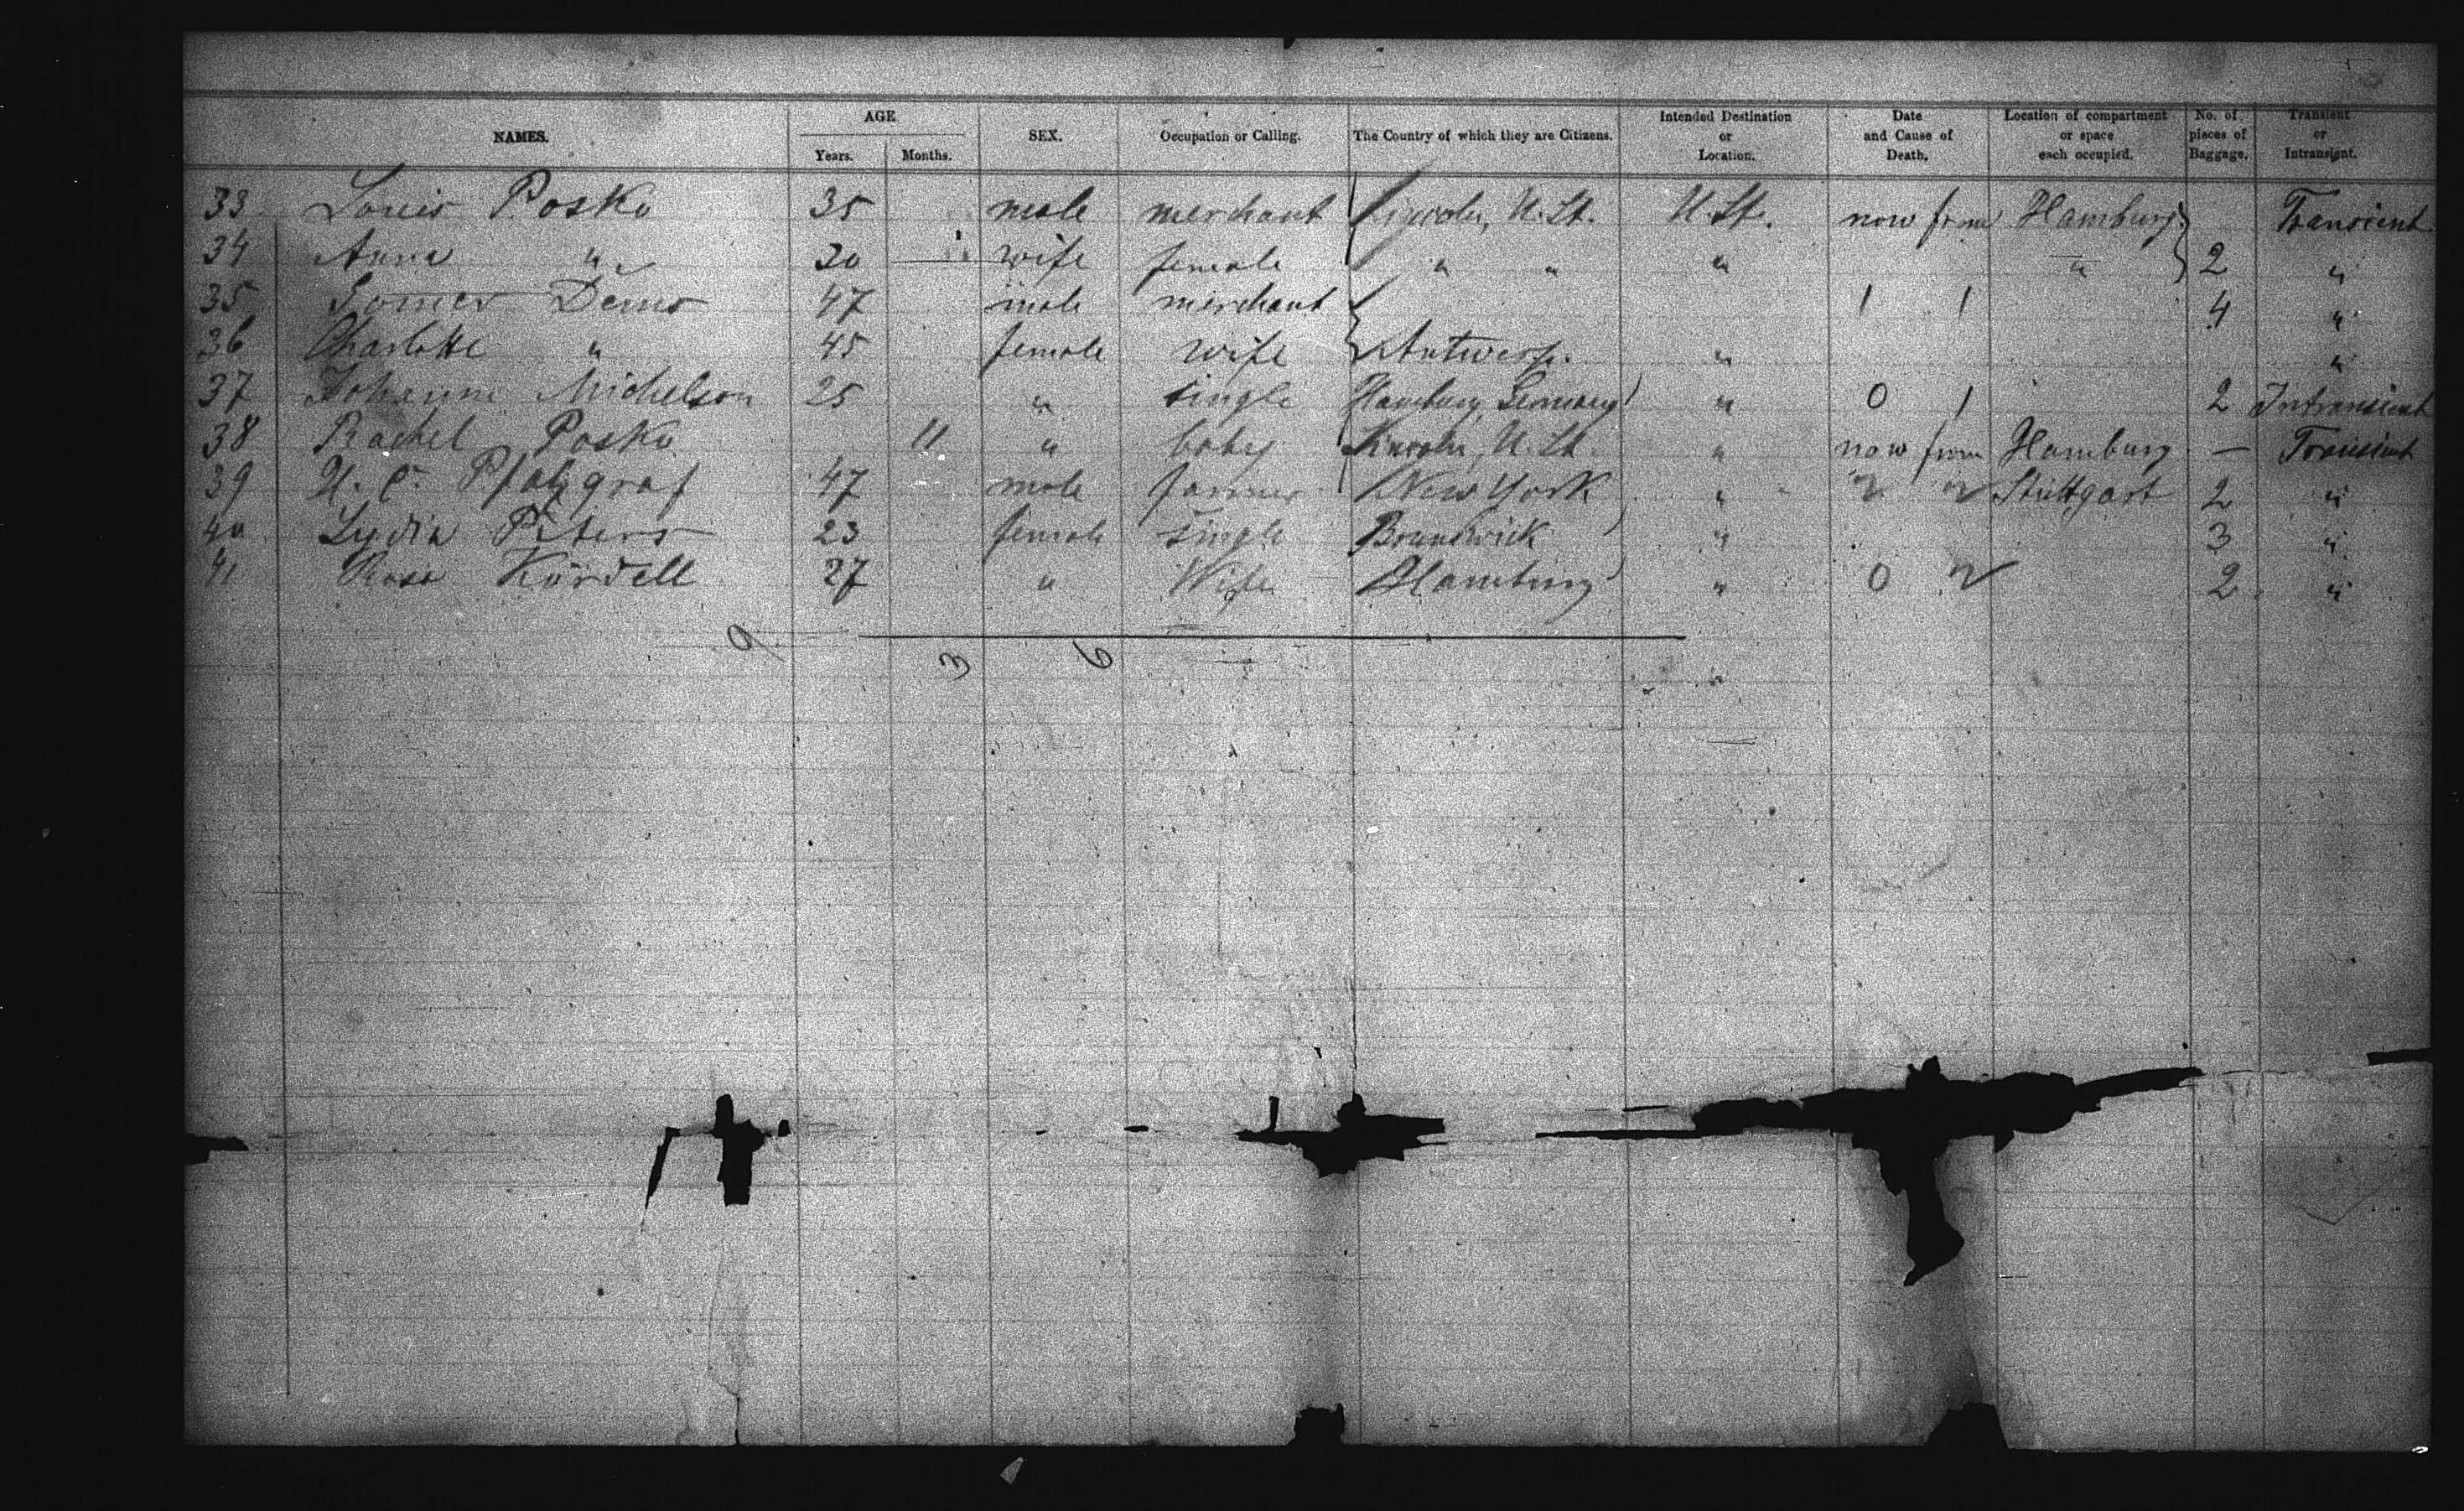 NAMES. AGE Years. Months. SEX. Occupation or Calling. The Country of which they are Citizens. Intended Destination or Location. Date and Cause of Death. Location of compartment or space each occupied. No. of pieces of Baggage. Transient or Intransient.
33 Louis Posko 35 male merchant Lincoln, U. St. U. St. now from Hamburg Transient
34 Anna " 30 wife female " " " " 2 "
35 Demo 47 male merchant 1 1 4 "
36 Charlotte " 45 female wife Antwerp. " "
37 Johanne Michelson 25 " single Hamburg, Germany " 0 1 2 Intransient
38 Rachel Posko 11 " baby Lincoln, U. St. " now from Hamburg — Transient
39 H. C. Pfalzgraf 47 male farmer New York " " " Stuttgart 2 "
40 Lydia Peters 23 female single Brunswick " 3 "
41 Rosa Kördell 27 " Wife Hamburg " 0 2 2 "
9 3 6
"